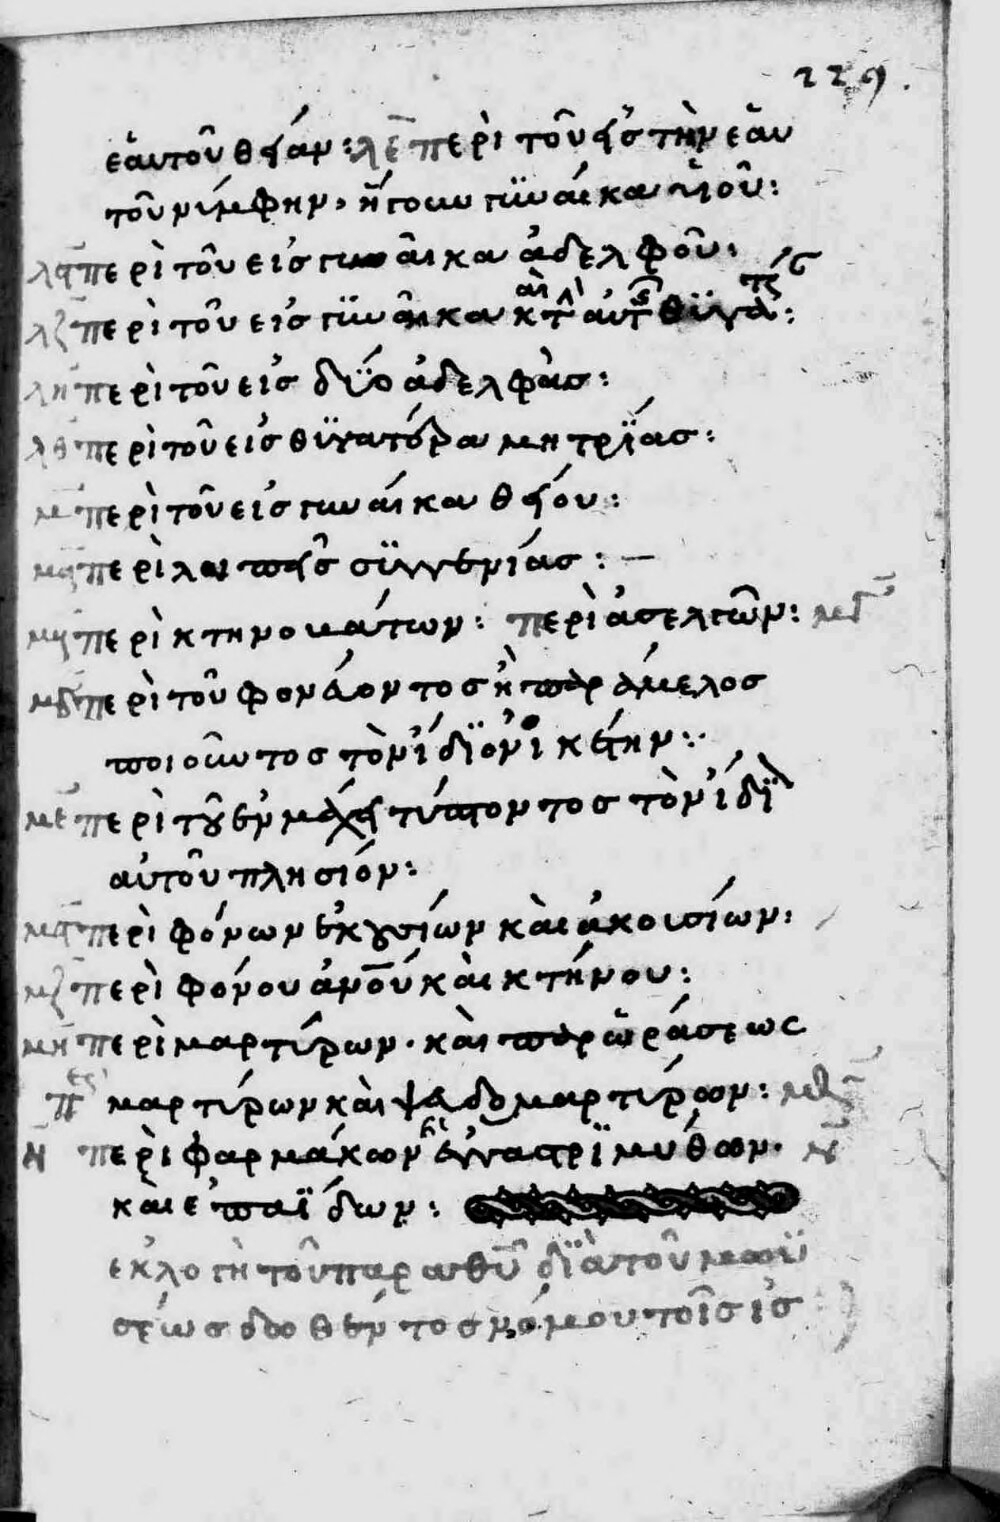 229.
ἑαυτοῦ θείαν: λε περὶ τοῦ εἰς τὴν ἑαυ
τοῦ νίμφην, ἤγουν γυναίκα υἱοῦ:
λϛ περὶ τοῦ εἰς γυναίκα ἀδελφοῦ:
λζ περὶ τοῦ εἰς γϋναίκα κ̀ τ αὐτ θϋγα τς:
λη περὶ τοῦ εἰς δύο ἀδελφὰσ:
λθ περὶ τοῦ εἰς θϋγατέρα μητρϊάσ:
μ περὶ τοῦ εἰς γυναίκα θείου:
μα περὶ λοιπῆς σϋγγενίασ: —
μβ περὶ κτηνοβάτων: περὶ ἀσελγῶν: μγ
μδ περὶ τοῦ φονέβοντοσ ἢ παράμελοσ
ποιοῦντοσ τὸν ἴδϊον ἰκέτην:
με περὶ τοῦ ἐν μάχῃ τύπτοντοσ τὸν ἴδϊ
αὐτοῦ πλησιόν:
μϛ περὶ φόνων ἐκουσίων κὰι ἀκουσίων:
μζ περὶ φόνου ἀνοῦ κὰι κτήνου:
μη περὶ μαρτίρων. κὰι παρωράσεως
π μαρτίρων κὰι ψεδομαρτίρων: μθ
ν περὶ φαρμάκων κὶ ἐγγαστρϊμύθων. ν
κὰι ἐπαϊδων:
ἐκλογὴ τοῦ παρα θῡ δϊὰ τοῦ μωϋ
σέως δοθέντοσ νόμου τοῖσ ἰσ